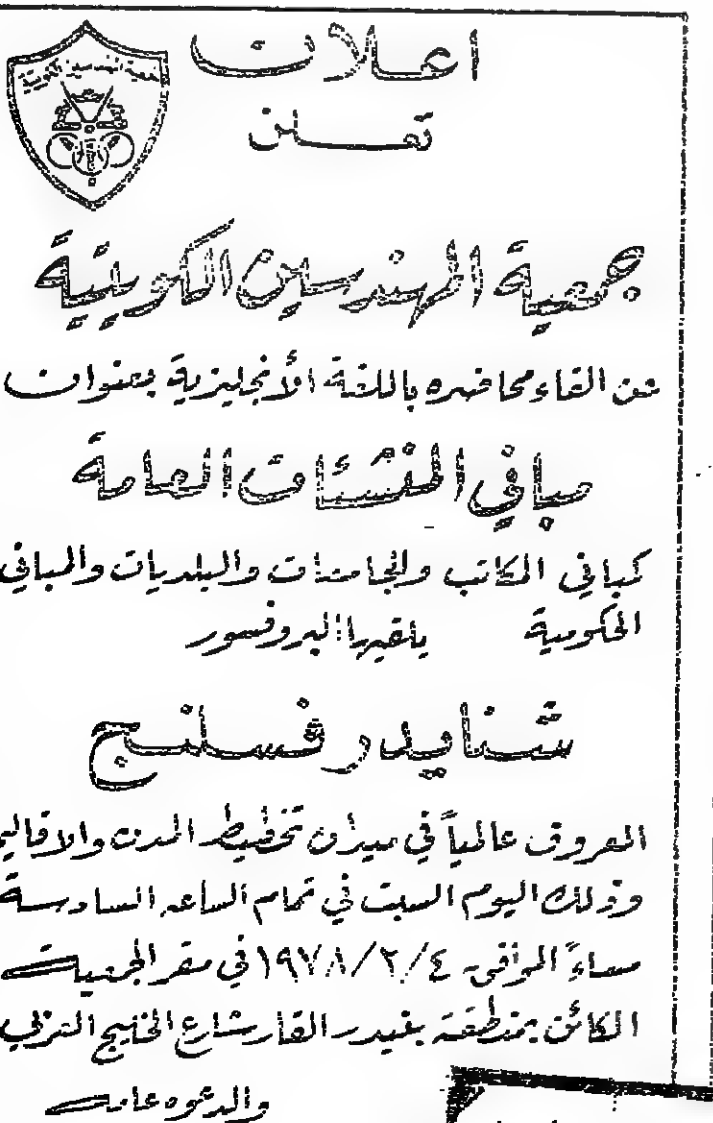 اعلان
جمعية المهندسين الكويتية
تعلن
جمعية المهندسين الكويتية
عن القاء محاضره باللغة الأنجليزية بعنوان
مباني المنشئات العامة
كمباني المكاتب والجامعات والبلديات والمباني
الحكومية يلقيها البروفسور
شنايدر فسلنج
المعروف عالمياً في ميدان تخطيط المدن والاقاليم
وذلك اليوم السبت في تمام الساعه السادسة
مساءً الموافق ١٩٧٨/٢/٤ في مقر الجمعية
الكائن بمنطقة بنيدر القار شارع الخليج العربي
والدعوه عامة